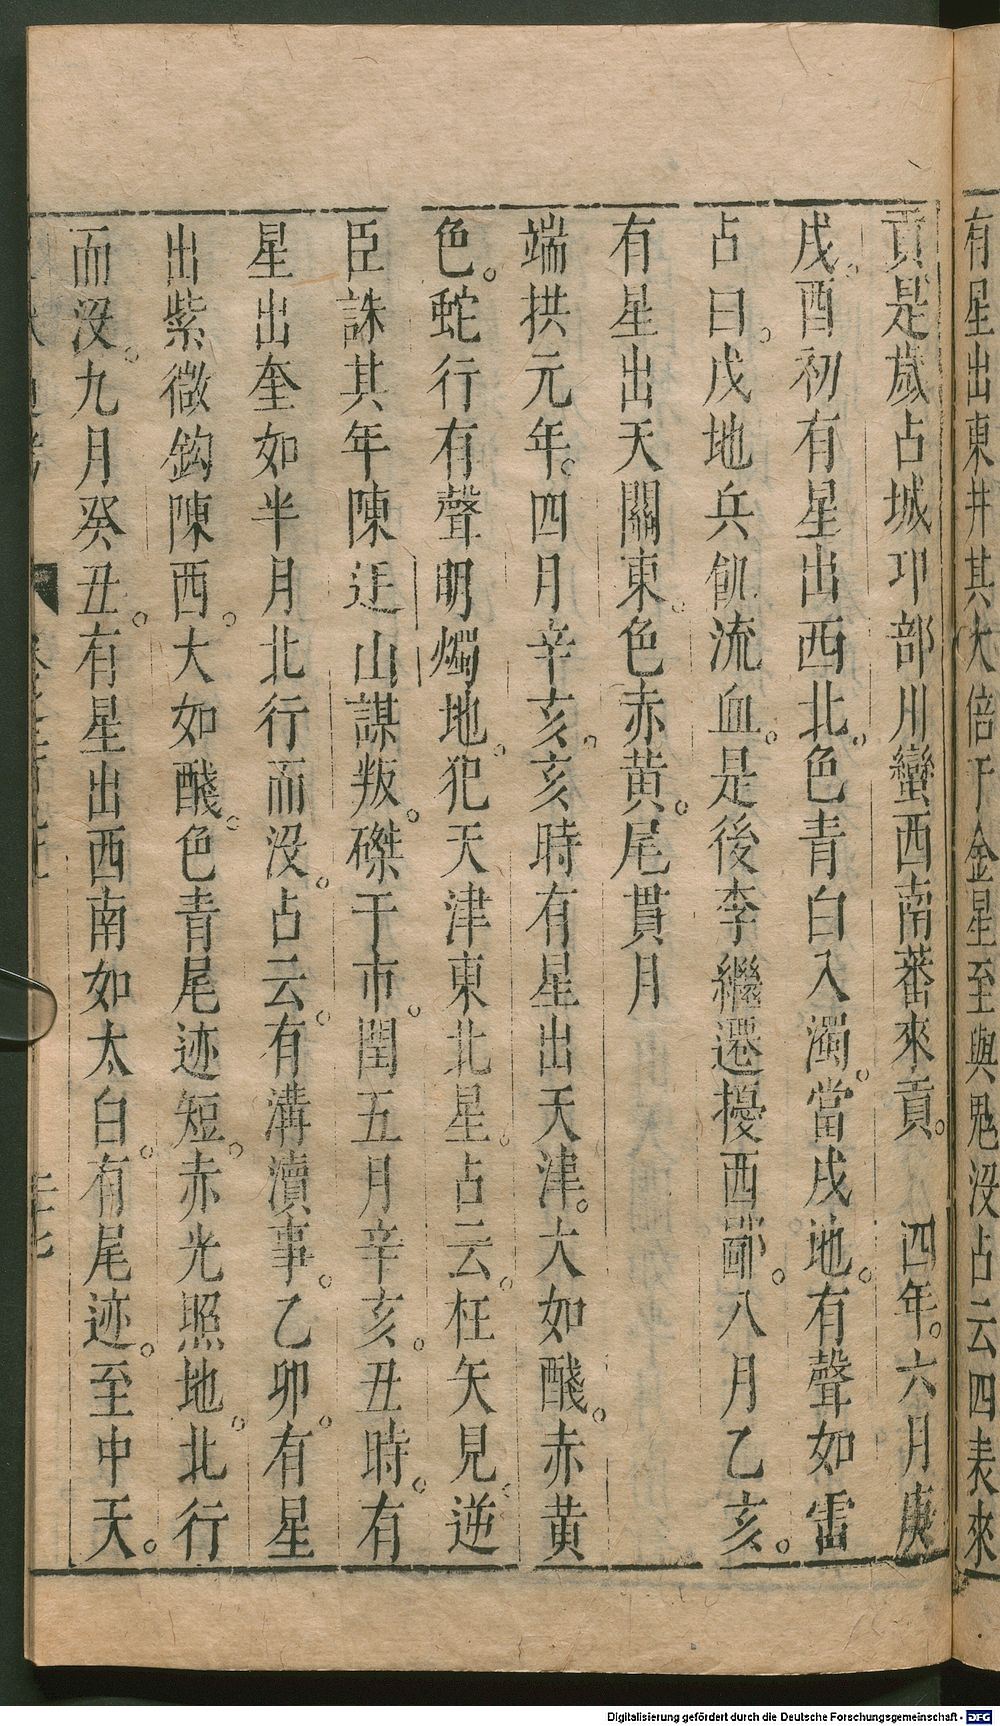 有星出東井其大倍于金星至與鬼没占云四表來
貢是歲占城卭部川蠻西南蕃來貢。 四年。六月庚
戌。酉初有星出西北。色青白入濁。當戌地。有聲如雷
占曰。戌地兵飢流血。是後李繼遷擾西鄙。八月乙亥。
有星出天關東。色赤黃。尾貫月
端拱元年。四月辛亥。亥時有星出天津。大如醆。赤黃
色。蛇行有聲明燭地。犯天津東北星。占云。枉矢見。逆
臣誅其年陳廷山謀叛。磔于市。閏五月辛亥。丑時。有
星出奎如半月北行而没。占云。有溝瀆事。乙卯。有星
出紫微鈎陳西。大如醆。色青尾迹短。赤光照地。北行
而没。九月癸丑。有星出西南如太白。有尾迹。至中天。
Digitalisierung gefördert durch die Deutsche Forschungsgemeinschaft - DFG